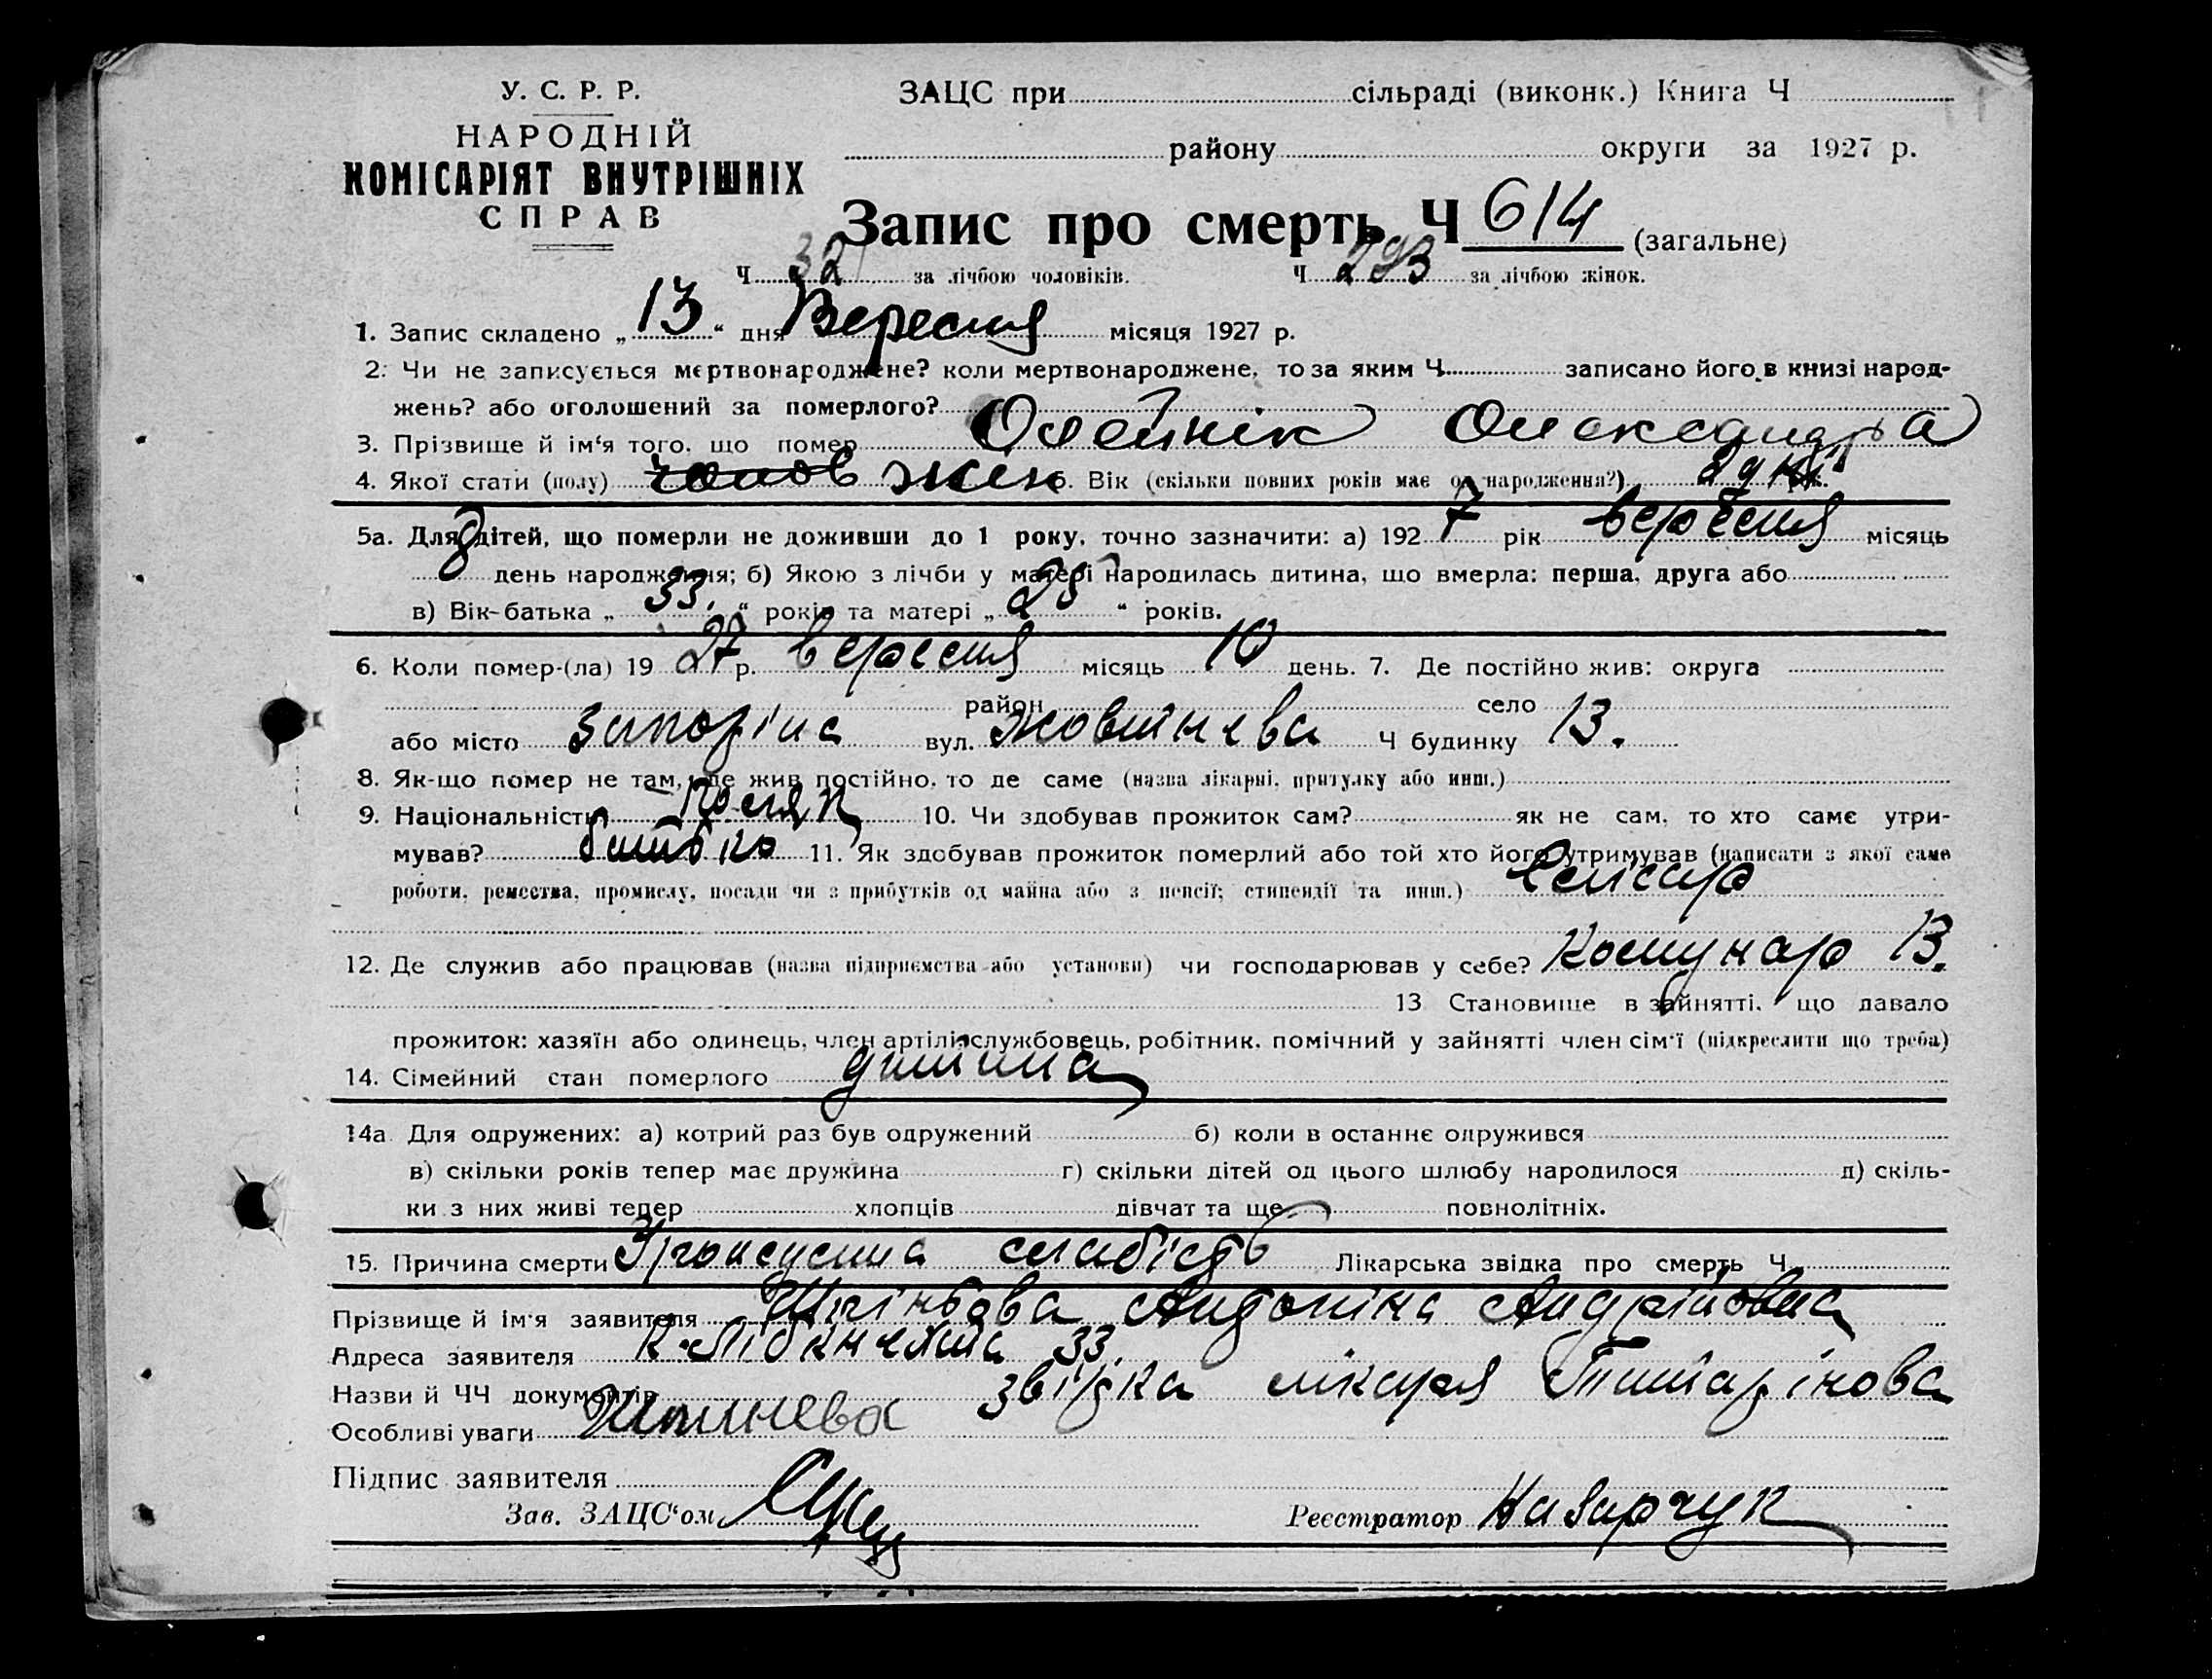 У. С. Р. Р.
НАРОДНІЙ
КОМІСАРІЯТ ВНУТРІШНІХ
СПРАВ
ЗАЦС при сільраді (виконк.) Книга Ч
району округи за 1927 р.
Запис про смерть Ч 614 (загальне)
Ч за лічбою чоловіків. Ч 293 за лічбою жінок.
1. Запис складено „ 13 “ дня Вересня місяця 1927 р.
2. Чи не записується мертвонароджене? коли мертвонароджене, то за яким Ч. записано його в книзі народ-
жень? або оголошений за померлого?
3. Прізвище й ім‘я того, що помер Олейнік Олександра
4. Якої стати (полу) чолов жін 5. Вік (скільки повних років має од народження?) 2 дні
5а. Для дітей, що померли не доживши до 1 року, точно зазначити: а) 192 7 рік вересня місяць
8 день народження; б) Якою з лічби у матері народилась дитина, що вмерла: перша, друга або
в) Вік-батька „ 33. “ років та матері „ 25 “ років.
6. Коли помер-(ла) 19 27 р. вересня місяць 10 день. 7. Де постійно жив: округа
район село
або місто Запоріжа вул. Жовтнева Ч будинку 13.
8. Як-що помер не там, де жив постійно, то де саме (назва лікарні, притулку або инш.)
9. Національність поляк 10. Чи здобував прожиток сам? як не сам, то хто саме утри-
мував? батько 11. Як здобував прожиток померлий або той хто його утримував (написати з якої саме
роботи, ремества, промислу, посади чи з прибутків од майна або з пенсії; стипендії та инш.) слюсар
12. Де служив або працював (назва підприємства або установи) чи господарював у себе? Комунар
13 Становище в зайнятті, що давало
прожиток: хазяїн або одинець, член артілі, службовець, робітник, помічний у зайнятті член сім‘ї (підкреслити що треба)
14. Сімейний стан померлого дитина
14а Для одружених: а) котрий раз був одружений б) коли в останнє одружився
в) скільки років тепер має дружина г) скільки дітей од цього шлюбу народилося д) скіль-
ки з них живі тепер хлопців дівчат та ще повнолітніх.
15. Причина смерти слабість Лікарська звідка про смерть Ч.
Прізвище й ім‘я заявителя Антоніна Андріївна
Адреса заявителя К. Лібкнехта 33.
Назви й ЧЧ документів звідка лікаря
Особливі уваги
Підпис заявителя
Зав. ЗАЦС‘ом Реєстратор Назарчук